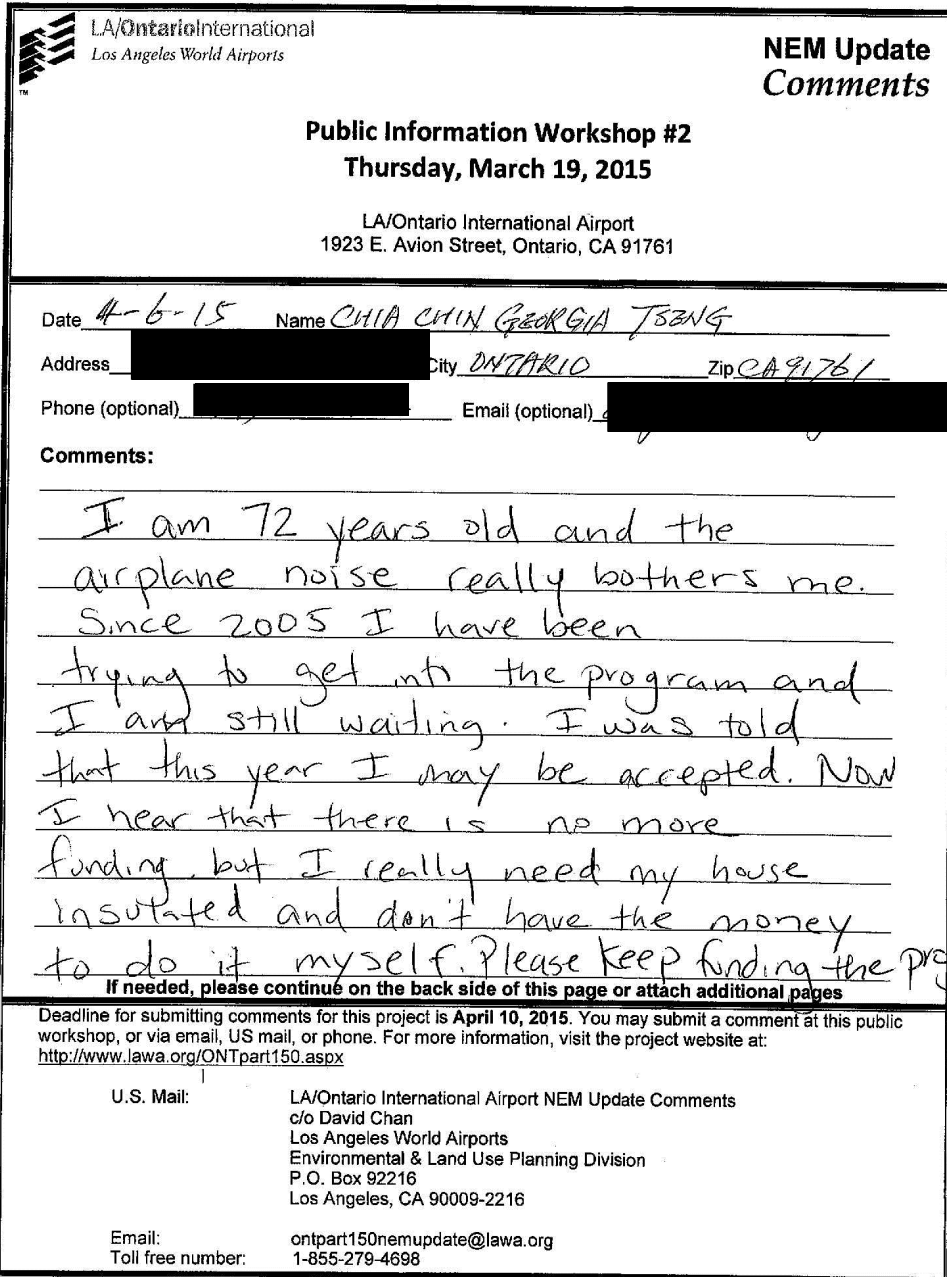 LA/OntarioInternational
Los Angeles World Airports
TM
NEM Update
Comments
Public Information Workshop #2
Thursday, March 19, 2015
LA/Ontario International Airport
1923 E. Avion Street, Ontario, CA 91761
Date 4-6-15 Name CHIA CHIN GEORGIA TSENG
Address City ONTARIO Zip CA 91761
Phone (optional) Email (optional)
Comments:
I am 72 years old and the
airplane noise really bothers me.
Since 2005 I have been
trying to get into the program and
I am still waiting. I was told
that this year I may be accepted. Now
I hear that there is no more
funding, but I really need my house
insulated and don't have the money
to do it myself. Please keep funding the pro
If needed, please continue on the back side of this page or attach additional pages
Deadline for submitting comments for this project is April 10, 2015. You may submit a comment at this public
workshop, or via email, US mail, or phone. For more information, visit the project website at:
http://www.lawa.org/ONTpart150.aspx
U.S. Mail: LA/Ontario International Airport NEM Update Comments
c/o David Chan
Los Angeles World Airports
Environmental & Land Use Planning Division
P.O. Box 92216
Los Angeles, CA 90009-2216
Email: ontpart150nemupdate@lawa.org
Toll free number: 1-855-279-4698